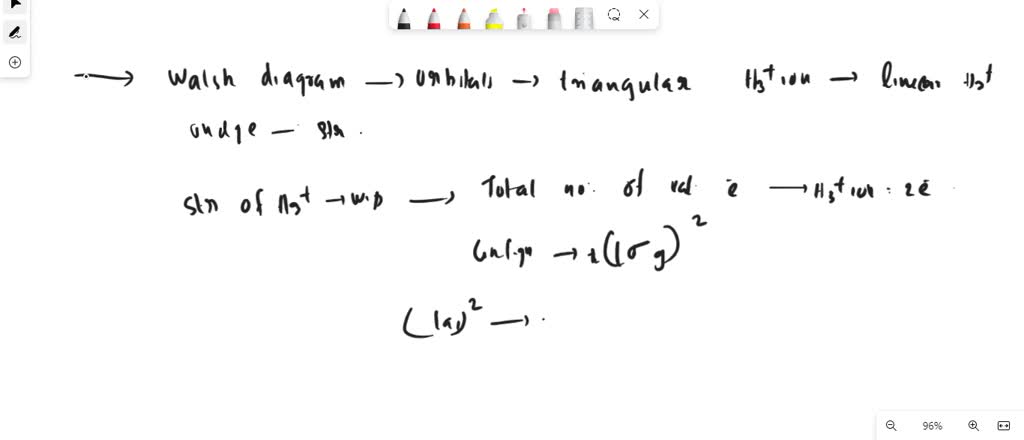 → Walsh diagram → orbitals → triangular H3+ ion → linear H3+
and ge - str.
str of H3+ → W.D → Total no. of val e → H3+ ion : 2e
Config → (1σg)2
(1a1)2 →
96%